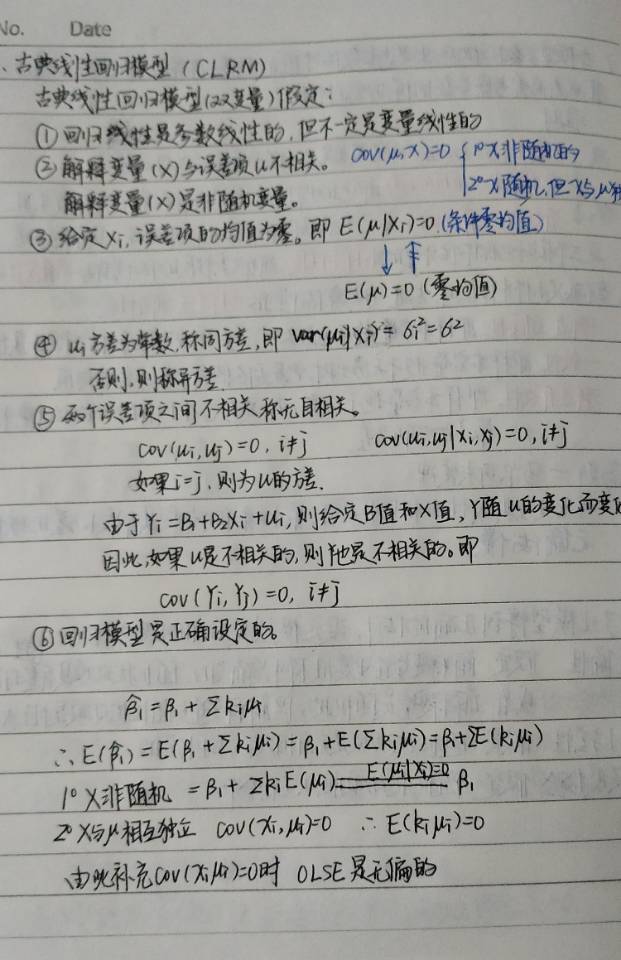 No. Date
、古典线性回归模型（CLRM）
古典线性回归模型(双变量)假定：
① 回归线性是参数线性的，但不一定是变量线性的
② 解释变量(X)与误差项u不相关。 cov(μ,x)=0 { 1° X非随机的
解释变量(X)是非随机变量。 2° X随机，但X与μ独
③ 给定Xi，误差项的均值为零。即 E(μ|Xi)=0 (条件零均值)
↓ ⇑
E(μ)=0 (零均值)
④ ui方差为常数，称同方差，即 var(μi|Xi) = б²i = б²
否则，则称异方差
⑤ 两个误差项之间不相关，称无自相关。
cov(ui,uj)=0, i≠j cov(ui,uj|xi,xj)=0, i≠j
如果i=j，则为u的方差.
由于Yi=B1+B2Xi+ui，则给定B值和X值，Y随u的变化而变化
因此，如果u是不相关的，则Y也是不相关的。即
cov(Yi,Yj)=0, i≠j
⑥ 回归模型是正确设定的。
β̂1=β1+Σkiμi
∴ E(β̂1)=E(β1+Σkiμi)=β1+E(Σkiμi)=β1+ΣE(kiμi)
1° X非随机 =β1+ΣkiE(μi) E(μi|Xi)=0 β1
2° X与μ相互独立 cov(xi,μi)=0 ∴ E(kiμi)=0
由此补充cov(xiμi)=0时 OLSE是无偏的